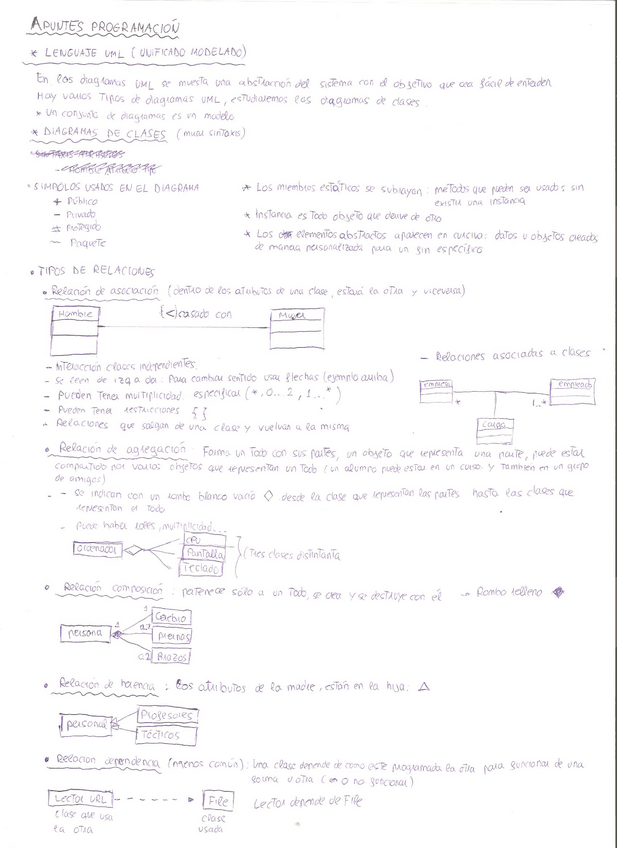 APUNTES PROGRAMACIÓN
* LENGUAJE UML (UNIFICADO MODELADO)
En los diagramas UML se muesta una abstracción del sistema con el objetivo que sea fácil de entender
Hay varios Tipos de diagramas UML, estudiaremos los diagramas de clases.
* Un conjunto de diagramas es un modelo
* DIAGRAMAS DE CLASES (mirar sintaxis)
· SIMBOLOS USADOS EN EL DIAGRAMA
+ Público
- Privado
# Protegido
~ Paquete
* Los miembros estáticos se subrayan: métodos que pueden ser usados sin
existir una instancia
* Instancia es Todo objeto que derive de otro
* Los elementos abstractos aparecen en cursiva: datos u objetos creados
de manera personalizada para un fin específico
• TIPOS DE RELACIONES
• Relación de asociación (dentro de los atributos de una clase, estará la otra y viceversa)
Hombre
{<}casado con
Mujer
- Interacción clases independientes
- se leen de izq a da: Para cambiar sentido usar flechas (ejemplo arriba)
- Pueden Tener multiplicidad: especificar (*, 0...2, 1...*)
- Pueden Tener restricciones { }
- Relaciones que salgan de una clase y vuelvan a la misma
- Relaciones asociadas a clases
empresa
empleado
*
1..*
Cargo
• Relación de agregación: Forma un Todo con sus partes, un objeto que representa una parte, puede estar
compartido por varios objetos que representan un Todo (un alumno puede estar en un curso y también en un grupo
de amigos)
- Se indican con un rombo blanco vacío ◇ desde la clase que representan las partes hasta las clases que
representan el Todo
- Puede haber roles, multiplicidad...
Ordenador
CPU
Pantalla
Teclado
(Tres clases distintanta
• Relación composición: pertenece sólo a un Todo, se crea y se destruye con él → Rombo relleno ◆
persona
1
1
Cerebro
a2
piernas
a2
Brazos
• Relación de herencia: Los atributos de la madre, están en la hija: △
personal
Profesores
Técticos
• Relación dependencia (menos común): Una clase depende de como esté programada la otra para funcionar de una
forma u otra (o no funcionar)
Lector URL
File
Lector depende de File
clase que usa
la otra
clase
usada